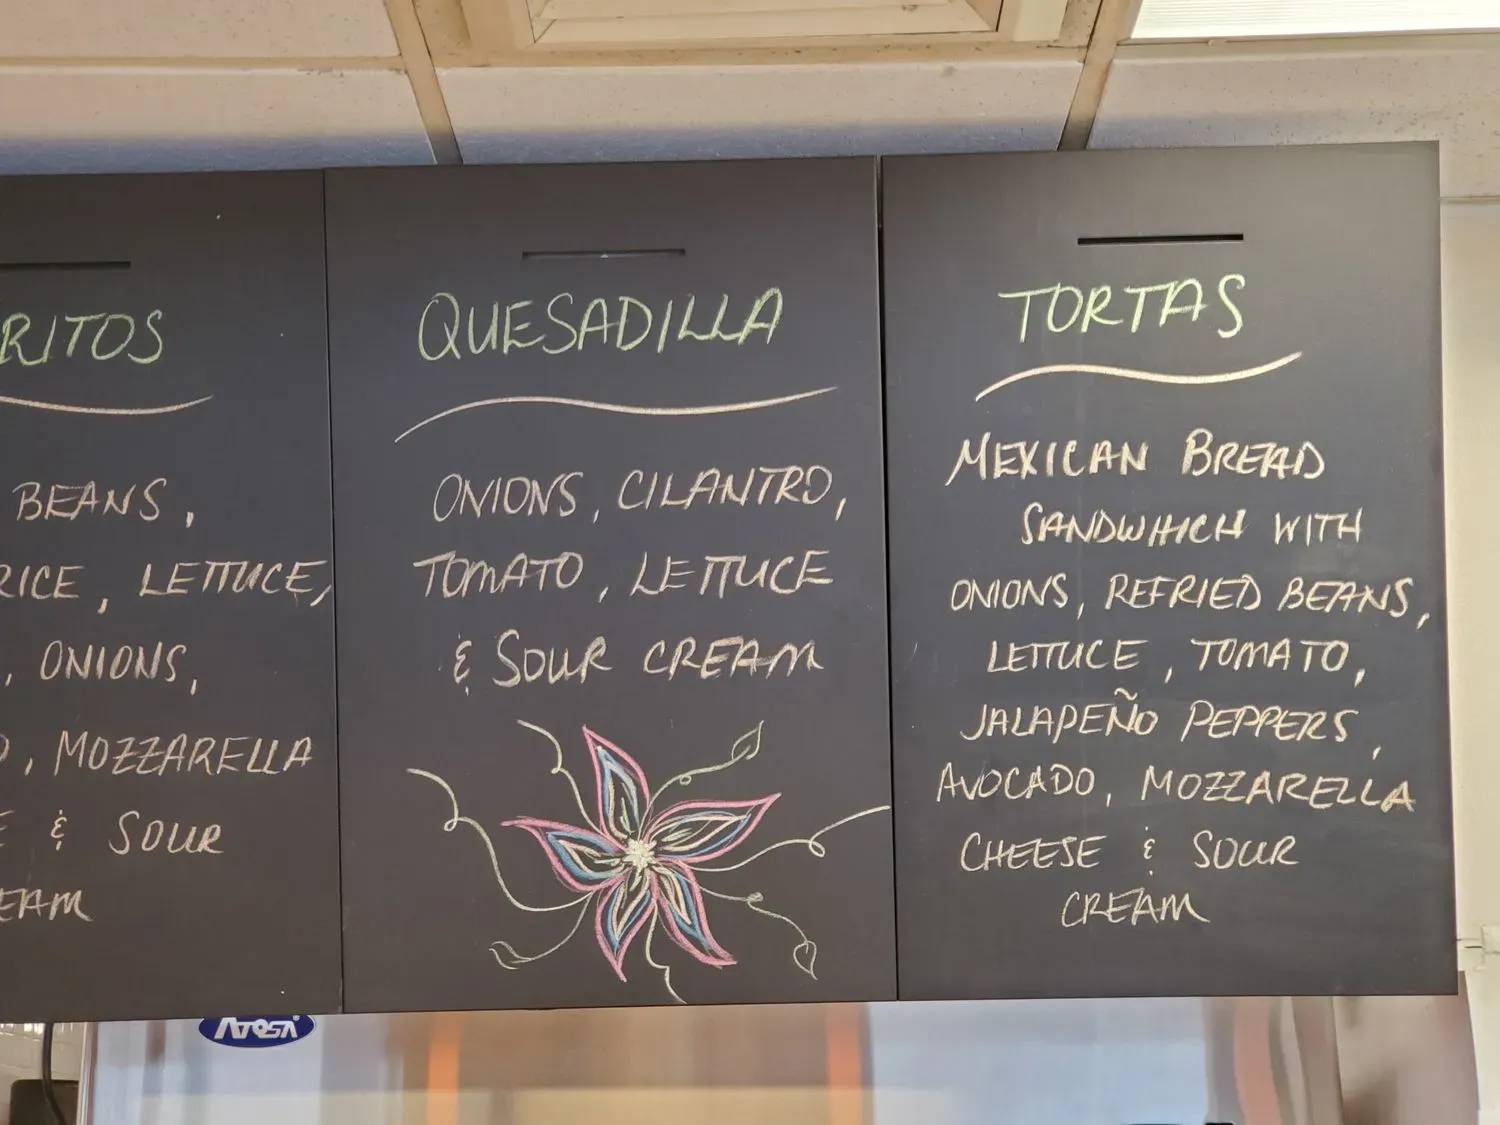 RITOS
BEANS,
RICE, LETTUCE,
, ONIONS,
, MOZZARELLA
E & SOUR
EAM
QUESADILLA
ONIONS, CILANTRO,
TOMATO, LETTUCE
& SOUR CREAM
TORTAS
MEXICAN BREAD
SANDWHICH WITH
ONIONS, REFRIED BEANS,
LETTUCE, TOMATO,
JALAPEÑO PEPPERS,
AVOCADO, MOZZARELLA
CHEESE & SOUR
CREAM
ATOSA